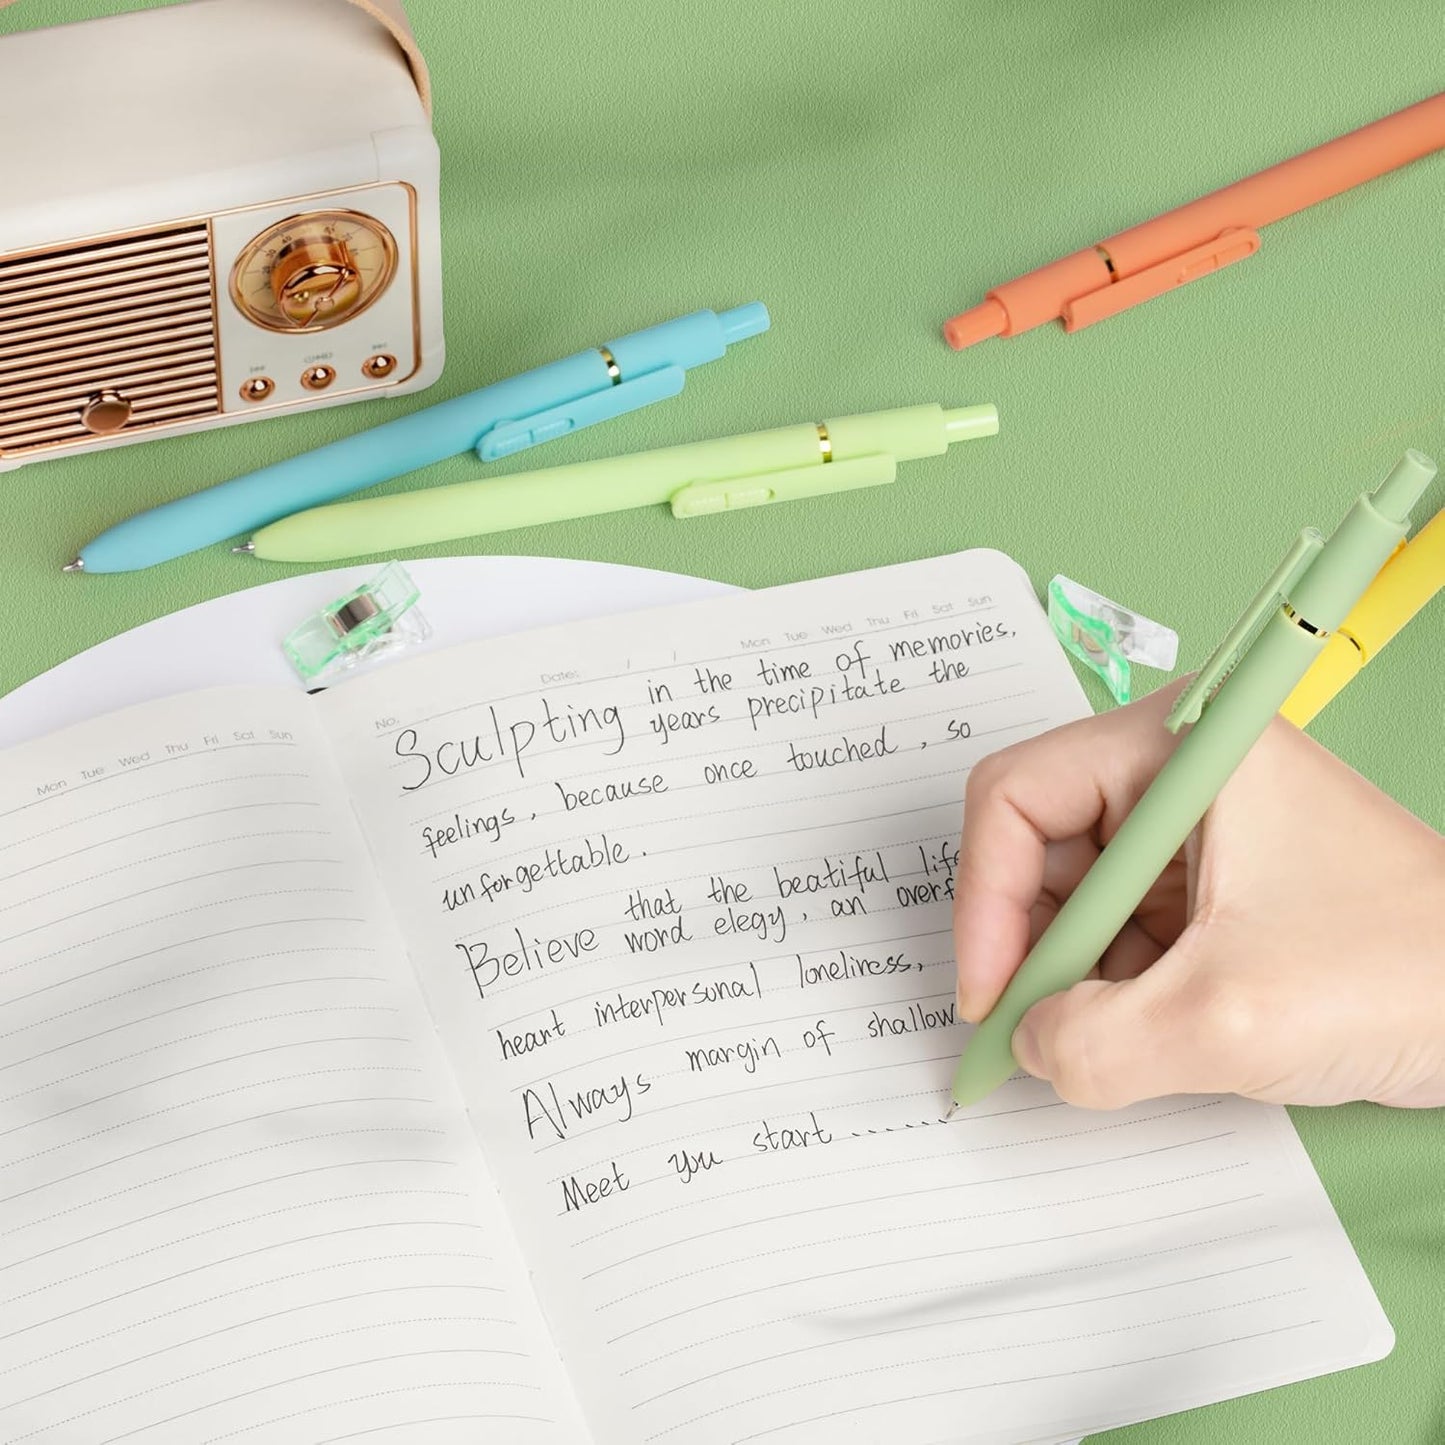 Mon Tue Wed Thu Fri Sat Sun
No.
Date: / /
Mon Tue Wed Thu Fri Sat Sun
Sculpting in the time of memories,
years precipitate the
feelings, because once touched, so
unforgettable.
Believe that the beatiful
word elegy, an
heart interpersonal loneliness,
Always margin of shallow
Meet you start ......